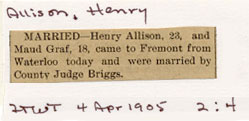 Allison, Henry
MARRIED—Henry Allison, 23, and
Maud Graf, 18, came to Fremont from
Waterloo today and were married by
County Judge Briggs.
4 Apr 1905 2:4